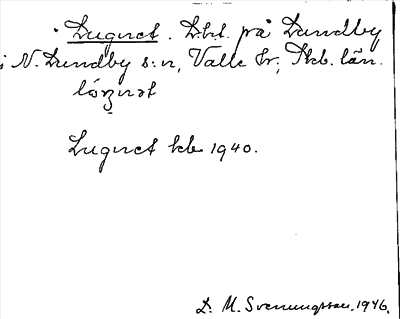 Lugnet. Lht. på Lundby
i N. Lundby s:n, Valle hr; Skb. län.
Lugnet kb 1940.
D. M. Svenungsson. 1946.